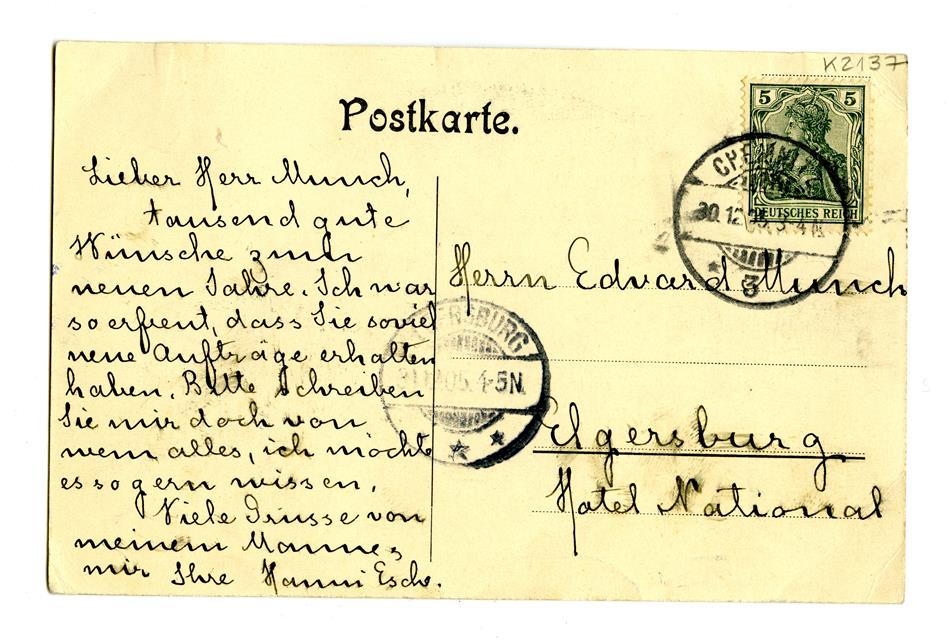 K2137
Postkarte.
5 5
DEUTSCHES REICH
CHEMNITZ
30.12.05. 3-4N.
* 3
Lieber Herr Munch,
tausend gute
Wünsche zum
neuen Jahre. Ich war
so erfreut, dass Sie soviel
neue Aufträge erhalten
haben. Bitte schreiben
Sie mir doch von
wem alles, ich möchte
es so gern wissen.
Viele Grüsse von
meinem Manne,
mir Ihre Hanni Esche.
ERSBURG
31.12.05. 4-5N.
* *
Herrn Edvard Munch
Elgersburg
Hotel National